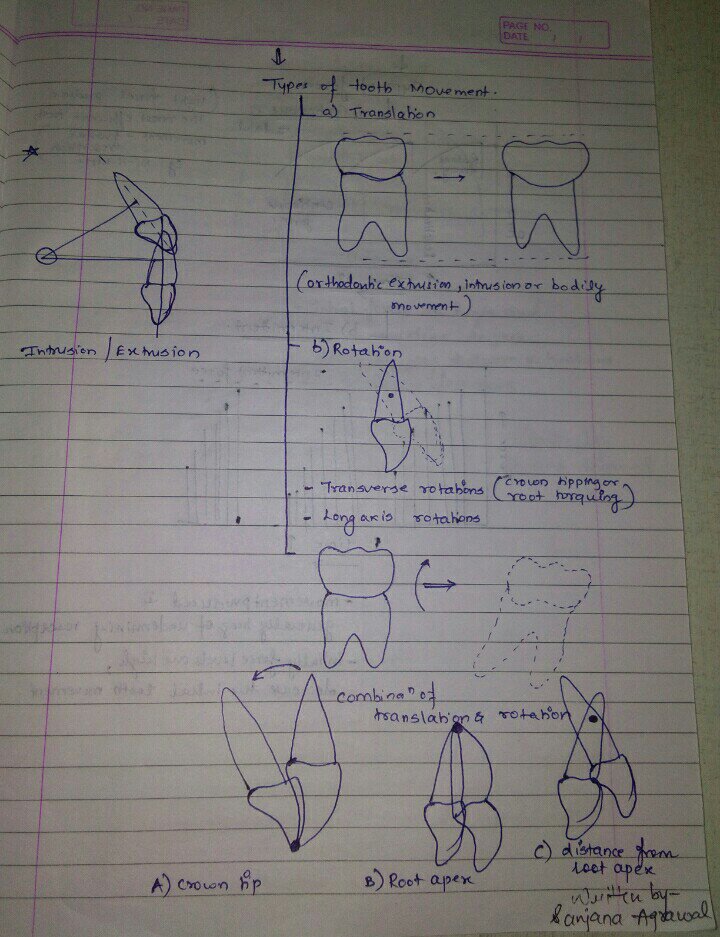 PAGE NO.
DATE / /
Types of tooth Movement.
a) Translation
(orthodontic extrusion, intrusion or bodily
movement)
Intrusion / Extrusion
b) Rotation
- Transverse rotations (crown tipping or
root torquing)
- Long axis rotations
combinaⁿ of
translation & rotation
A) crown tip
B) Root apex
C) distance from
root apex
Written by-
Sanjana Agrawal